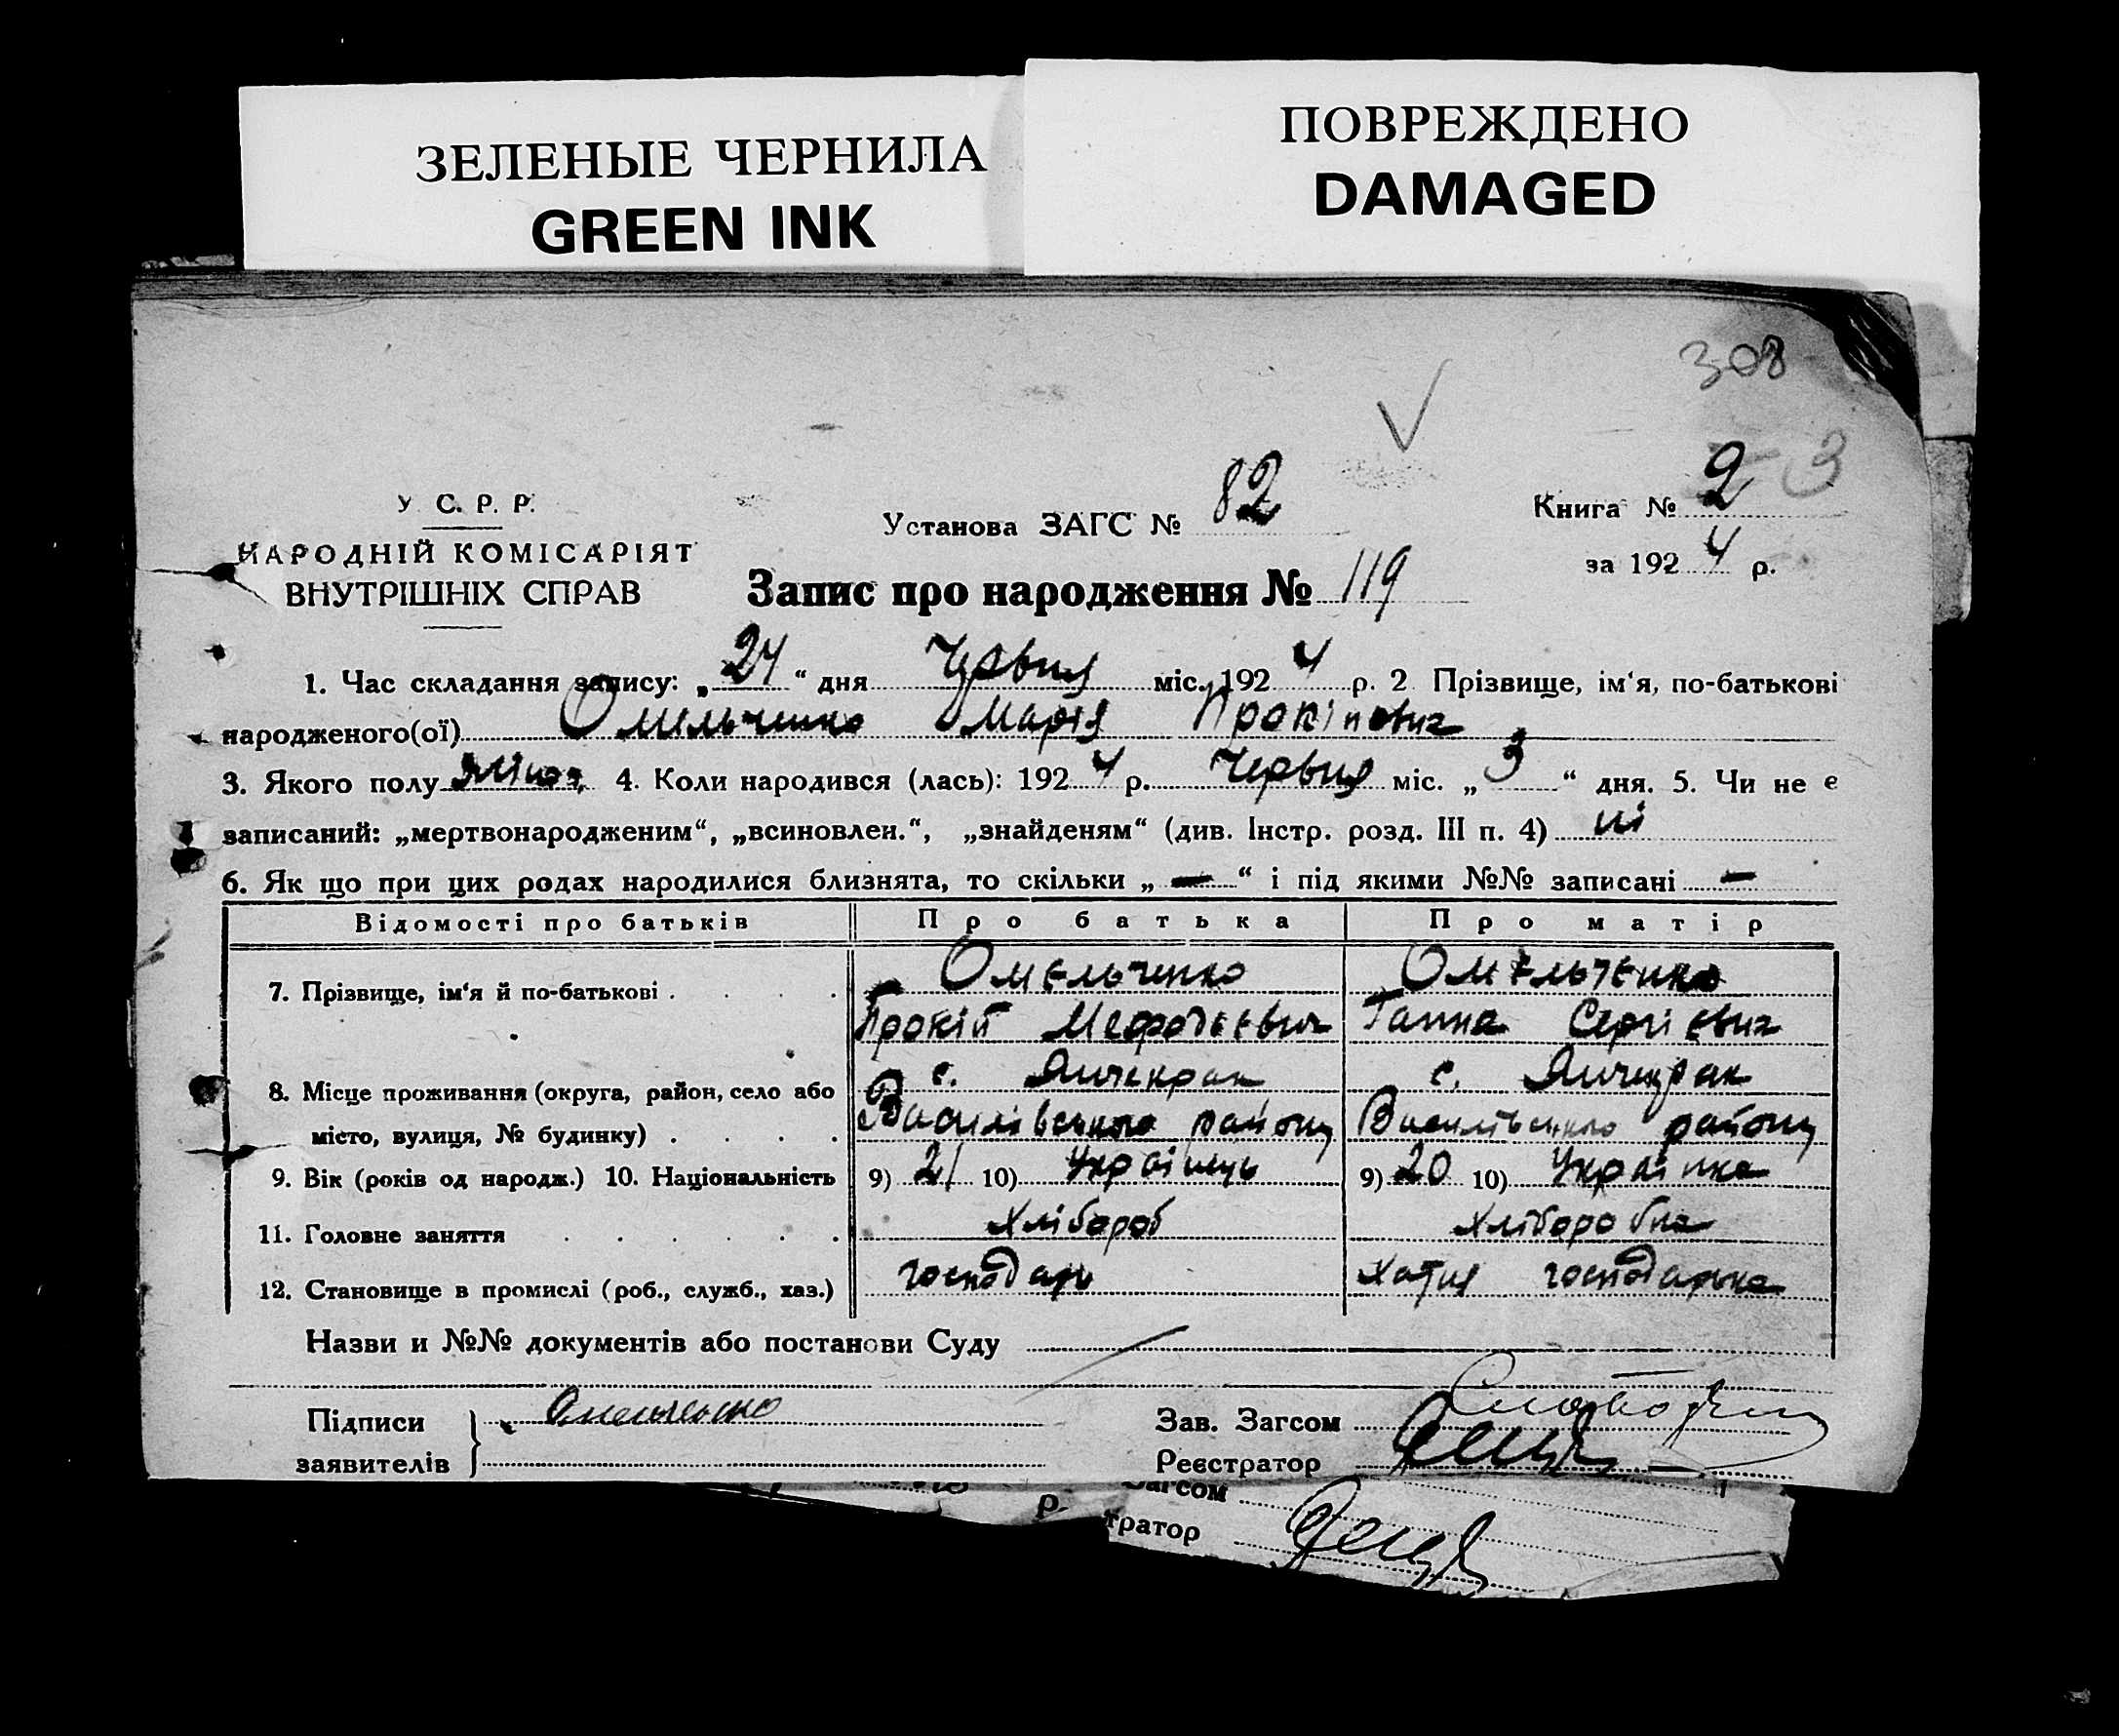 ЗЕЛЕНЫЕ ЧЕРНИЛА
GREEN INK
ПОВРЕЖДЕНО
DAMAGED
308
У С. Р. Р.
НАРОДНІЙ КОМІСАРІЯТ
ВНУТРІШНІХ СПРАВ
Установа ЗАГС № 82
Книга № 2 3
за 1924 р.
Запис про народження № 119
1. Час складання запису: „24“ дня Червня міс. 1924 р. 2 Прізвище, ім‘я, по-батькові
народженого(ої) Омельченко Марія Прокіпович
3. Якого полу жіноч. 4. Коли народився (лась): 1924 р. Червня міс. „3“ дня. 5. Чи не є
записаний: „мертвонародженим“, „всиновлен.“, „знайденям“ (див. Інстр. розд. III п. 4) ні
6. Як що при цих родах народилися близнята, то скільки „—“ і під якими №№ записані —
Відомості про батьків Про батька Про матір
7. Прізвище, ім‘я й по-батькові . . . . Омельченко Омельченко
Прокіп Мефодьевич Ганна Сергієвич
с. Янчекрак с. Янчекрак
8. Місце проживання (округа, район, село або
місто, вулиця, № будинку) . . . . Василівського району Василівського району
9. Вік (років од народж.) 10. Національність 9) 21 10) Українець 9) 20 10) Українка
11. Головне заняття . . . . . . Хлібороб Хліборобка
12. Становище в промислі (роб., служб., хаз.) господарь Хатня господарька
Назви и №№ документів або постанови Суду
Підписи Омельченко Зав. Загсом
заявителів Реєстратор
р. Загсом
тратор